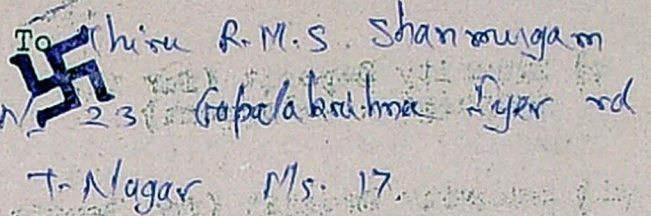 To Thiru R.M.S. Shanmugam
No 23 Gopalakrishna Iyer rd
T. Nagar Ms. 17.